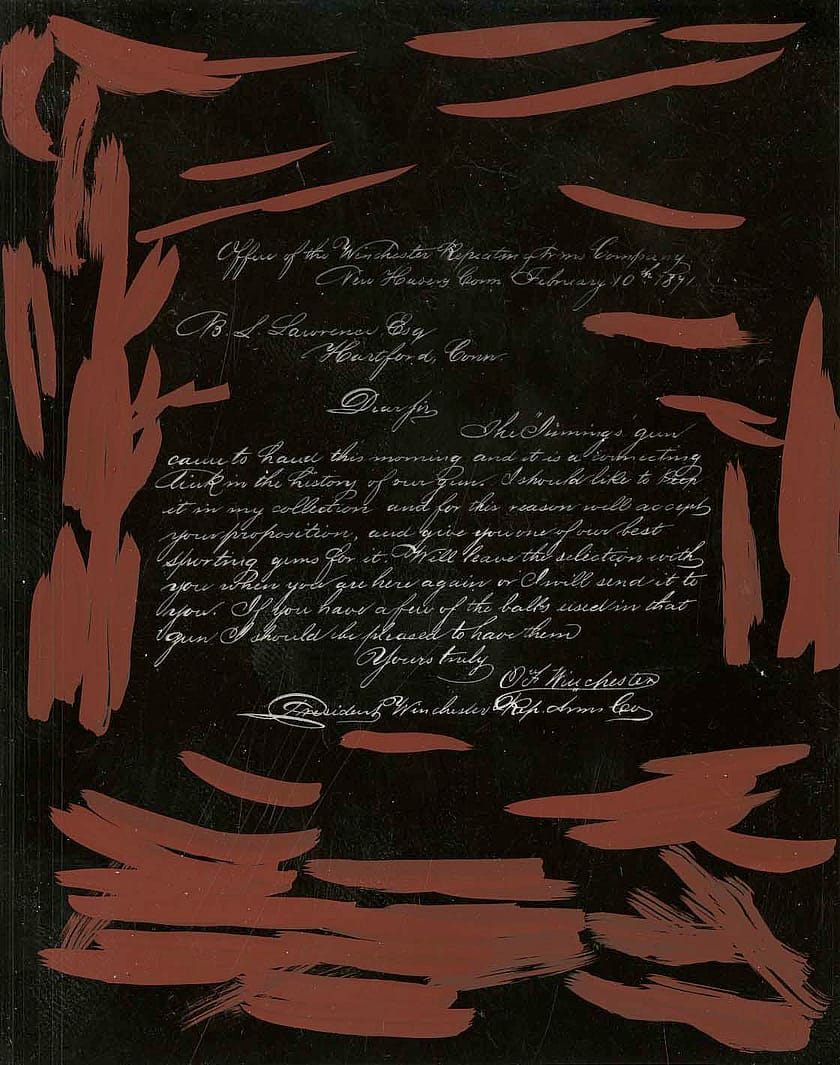 Office of the Winchester Repeating Arms Company
New Haven, Conn February 10th 1871
B. L. Lawrence Esq
Hartford, Conn.
Dear sir
The "Jennings" gun
came to hand this morning and it is a connecting
link in the history of our gun. I should like to keep
it in my collection and for this reason will accept
your proposition, and give you one of our best
sporting guns for it. Will leave the selection with
you when you are here again or I will send it to
you. If you have a few of the balls used in that
gun I should be pleased to have them
Yours truly
O F Winchester
President Winchester Rep. Arms Co